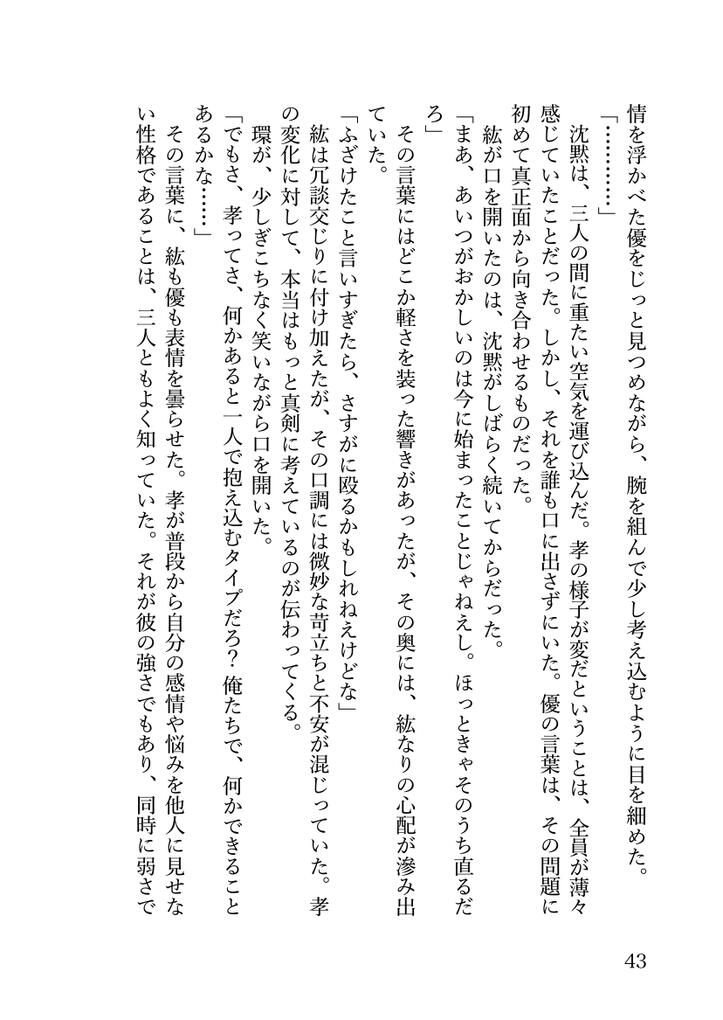 情を浮かべた優をじっと見つめながら、腕を組んで少し考え込むように目を細めた。
「…………」
沈黙は、三人の間に重たい空気を運び込んだ。孝の様子が変だということは、全員が薄々
感じていたことだった。しかし、それを誰も口に出さずにいた。優の言葉は、その問題に
初めて真正面から向き合わせるものだった。
紘が口を開いたのは、沈黙がしばらく続いてからだった。
「まあ、あいつがおかしいのは今に始まったことじゃねえし。ほっときゃそのうち直るだ
ろ」
その言葉にはどこか軽さを装った響きがあったが、その奥には、紘なりの心配が滲み出
ていた。
「ふざけたこと言いすぎたら、さすがに殴るかもしれねえけどな」
紘は冗談交じりに付け加えたが、その口調には微妙な苛立ちと不安が混じっていた。孝
の変化に対して、本当はもっと真剣に考えているのが伝わってくる。
環が、少しぎこちなく笑いながら口を開いた。
「でもさ、孝ってさ、何かあると一人で抱え込むタイプだろ？俺たちで、何かできること
あるかな……」
その言葉に、紘も優も表情を曇らせた。孝が普段から自分の感情や悩みを他人に見せな
い性格であることは、三人ともよく知っていた。それが彼の強さでもあり、同時に弱さで
43